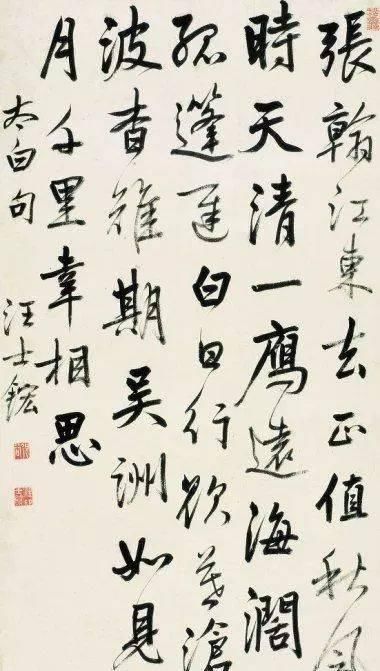 張翰江東去正值秋風
時天清一鴈遠海闊
孤蓬遲白日行欲暮滄
波杳難期吳洲如見
月千里幸相思
太白句 汪士鋐